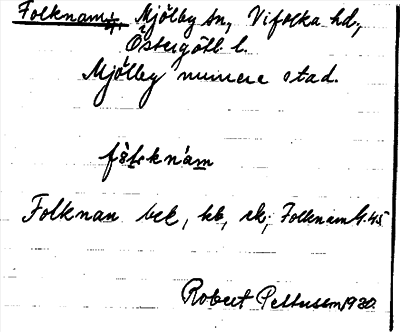 Folknam, Mjölby sn, Vifolka hd,
Östergötl l.
Mjölby numera stad.
Folknam bek, kb, sk; Folknam G. 45
Robert Pettersson 1930.